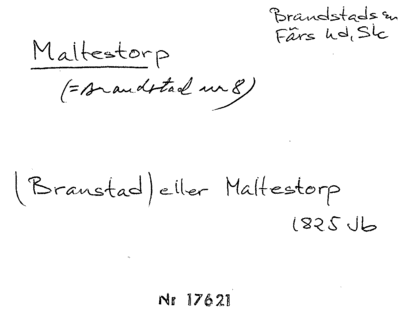 Brandstads sn
Färs hd, Sk
Maltestorp
(= Brandstad nr 8)
(Branstad) eller Maltestorp
1825 Jb
Nr 17621